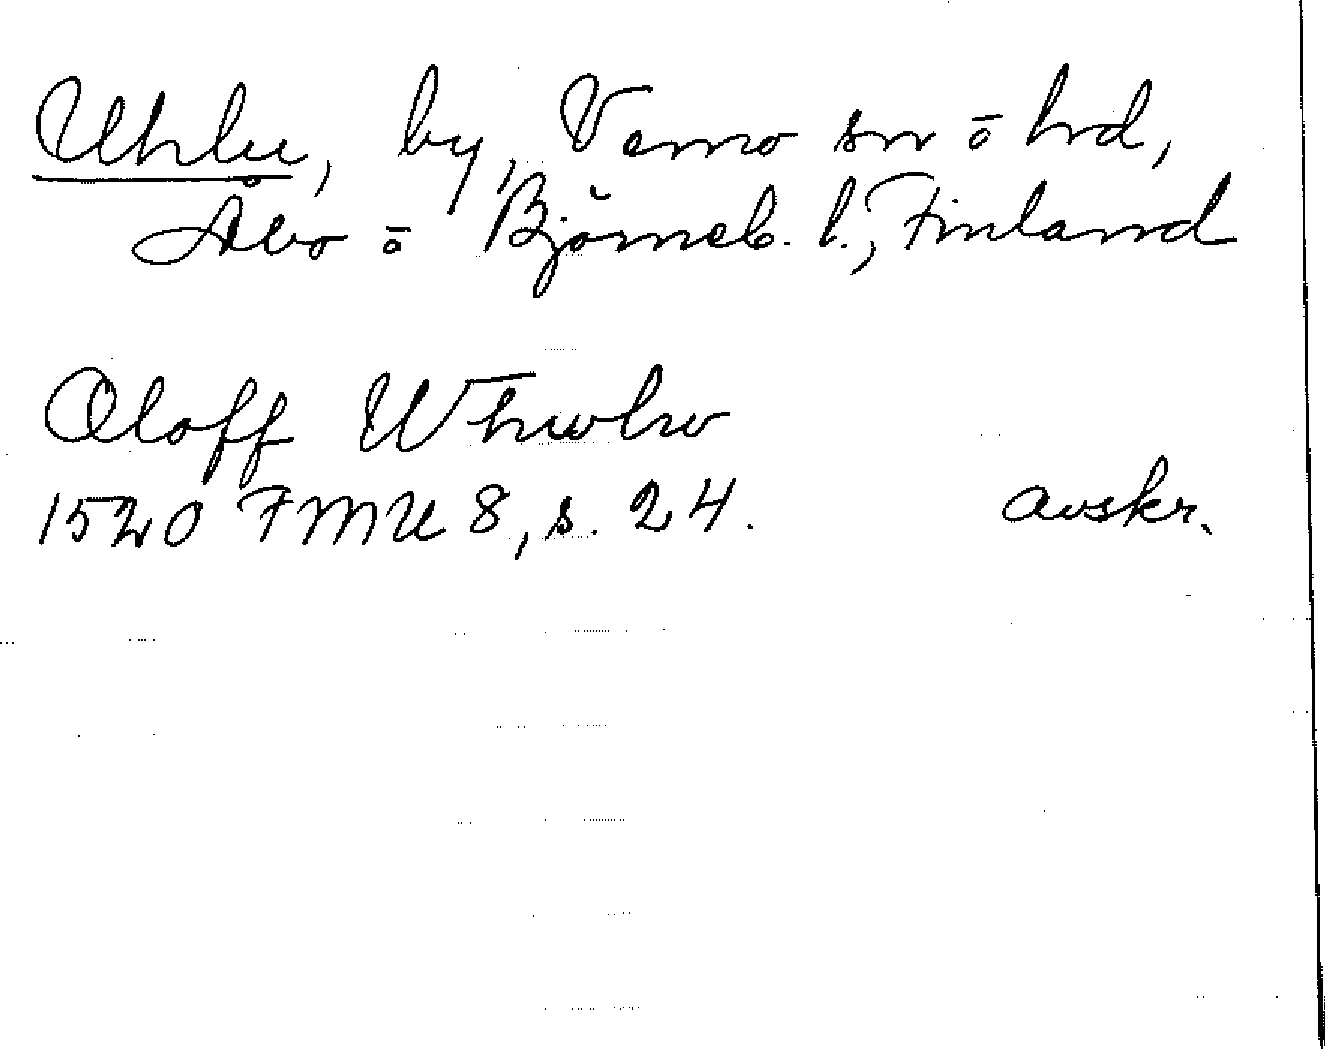 Uhlu, by, Vemo sn ō hrd,
Åbo ō Björneb. l., Finland
Oloff Whwlw
1520 FMU 8, s. 24. avskr.